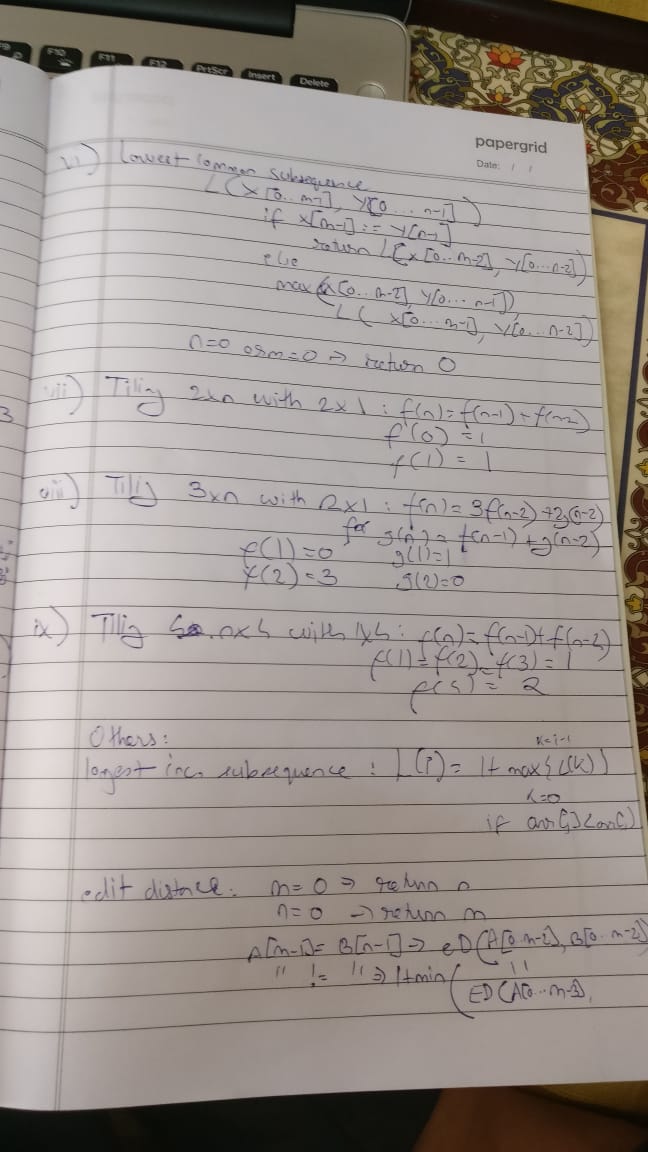 F9 F10 F11 F12 PrtScr Insert Delete
papergrid
Date: / /
vi) Lowest common subsequence
L(X[0..m-1], Y[0...n-1])
if X[m-1] == Y[n-1]
return L(X[0..m-2], Y[0...n-2])
else
max (X[0..m-2], Y[0...n-1]),
L( X[0...m-1], Y[0...n-2])
n=0 or m=0 => return 0
vii) Tiling 2xn with 2x1 : f(n)=f(n-1)+f(n-2)
f(0) = 1
f(1) = 1
viii) Tilig 3xn with 2x1 : f(n)= 3f(n-2)+2g(n-2)
for g(n)= f(n-1)+g(n-2)
f(1)=0 g(1)=1
f(2)=3 g(2)=0
ix) Tilig nx4 with 1x4 : f(n)=f(n-1)+f(n-4)
f(1)=f(2)=f(3)=1
f(4)= 2
Others:
k=i-1
longest inc. subsequence : L(i)= 1+ max{L(k)}
k=0
if arr[j]<arr[i]
edit distance: m=0 => return n
n=0 -> return m
A[m-1]= B[n-1]=> eD(A[0..m-2], B[0..n-2])
" != " => 1+min( "
ED(A[0...m-2],